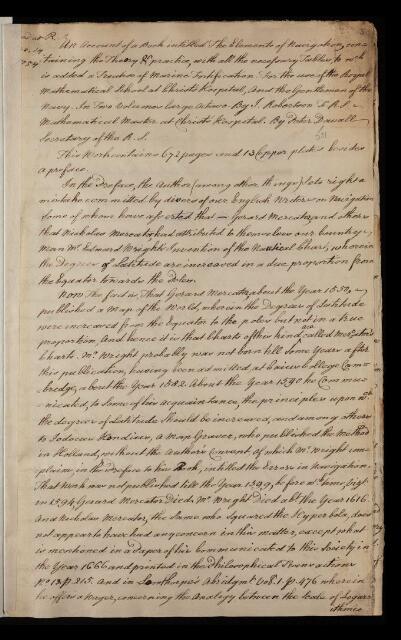 An Account of a Book intitled The Elements of Navigation, con-
taining the Theory & Practice, with all the necessary Tables, to wch
is added a Treatise of Marine Fortification. For the use of the Royal
Mathematical School at Christs Hospital, And the Gentlemen of the
Navy. In Two Volumes Large Octavo. By J. Robertson F.R.S.
Mathematical Master at Christs Hospital. By Peter Davall
Secretary of the R.S.
This Work contains 672 pages and 13 Copper plates besides
a preface.
In the Preface, the Author (among other things) Sets right a
mistake committed by divers of our English Writers on Navigation
some of whom have asserted that Gerard Mercator, and others
that Nicholas Mercator had attributed to themselves our Country-
Man Mr. Edward Wright's Invention of the Nautical Chart, wherein
the Degrees of Latitude are increased in a due proportion from
the Equator towards the Poles.
Now the fact is, That Gerard Mercator about the Year 1550,
published a Map of the World, wherein the Degrees of Latitude
were increased from the Equator to the poles but not in a true
proportion, And hence it is that Charts of this kind are called Mercator's
Charts. Mr. Wright probably was not born till Some Years after
this publication, having been admitted at Caius College Cam-
bridge, about the Year 1582. About the Year 1590 he Commu-
nicated, to Some of his acquaintance, the principles upon wch
the degrees of Latitude Should be increased, and among others
to Jodocus Hondius, a Man Graver, who published the Method
in Holland, without the Author's Consent, of which Mr. Wright com-
plains, in the Preface to his Book, intitled the Errors in Navigation.
That Work was not published till the Year 1599, before wch time
in 1594, Gerard Mercator Died. Mr. Wright Died abt. the Year 1616.
And Nicholas Mercator, the Same who Squared the Hyperbola, does
not appear to have had any concern in this matter, except what
is mentioned in a Paper of his communicated to this Society in
the Year 1666 and printed in the Philosophical Transactions
No. 13 p. 215. And in Lowthorpe's Abridgmt. Vol. 1. p. 476 wherein
he offers a Wager, concerning the Analogy between the Scale of Logar-
ithmic